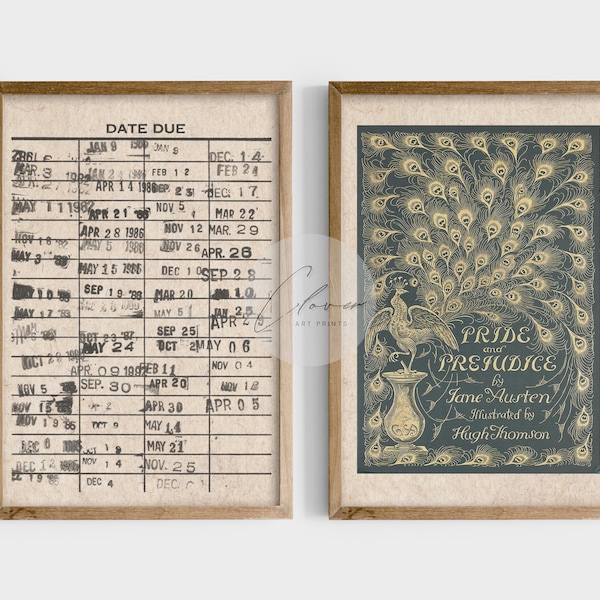 DATE DUE
JAN 9 1986 JAN 9
DEC. 14
MAR. 3 FEB 12 FEB 21
APR 14 1986 SEP 23 DEC. 17
MAY 11 1982 APR 21 '86 NOV 5 MAR 22
NOV 18 '82 APR 28 1986 NOV 12 MAR. 29
MAY 3 MAY 5 1986 NOV 26 APR. 26
MAY 15 1986 DEC 10 SEP 28
MAY 10 SEP 19 '88 MAR 20 JAN 10
MAY 51 JAN 25
SEP 25 APR 25
OCT 23 '87
MAY 24 OCT 2 MAY 06
OCT 28 APR. 09 1992 FEB 11
NOV 5 SEP. 30 APR 20 NOV 18
NOV 15 APR 30 APR 05
NOV 19 '85 OCT 9 MAY 14
DEC 6 NOV 4 MAY 21
DEC 12 1985 NOV 14 NOV. 25
DEC 19 1985 DEC 4 DEC.
Clover
ART PRINTS
PRIDE
and
PREJUDICE
by
Jane Austen
Illustrated by
Hugh Thomson